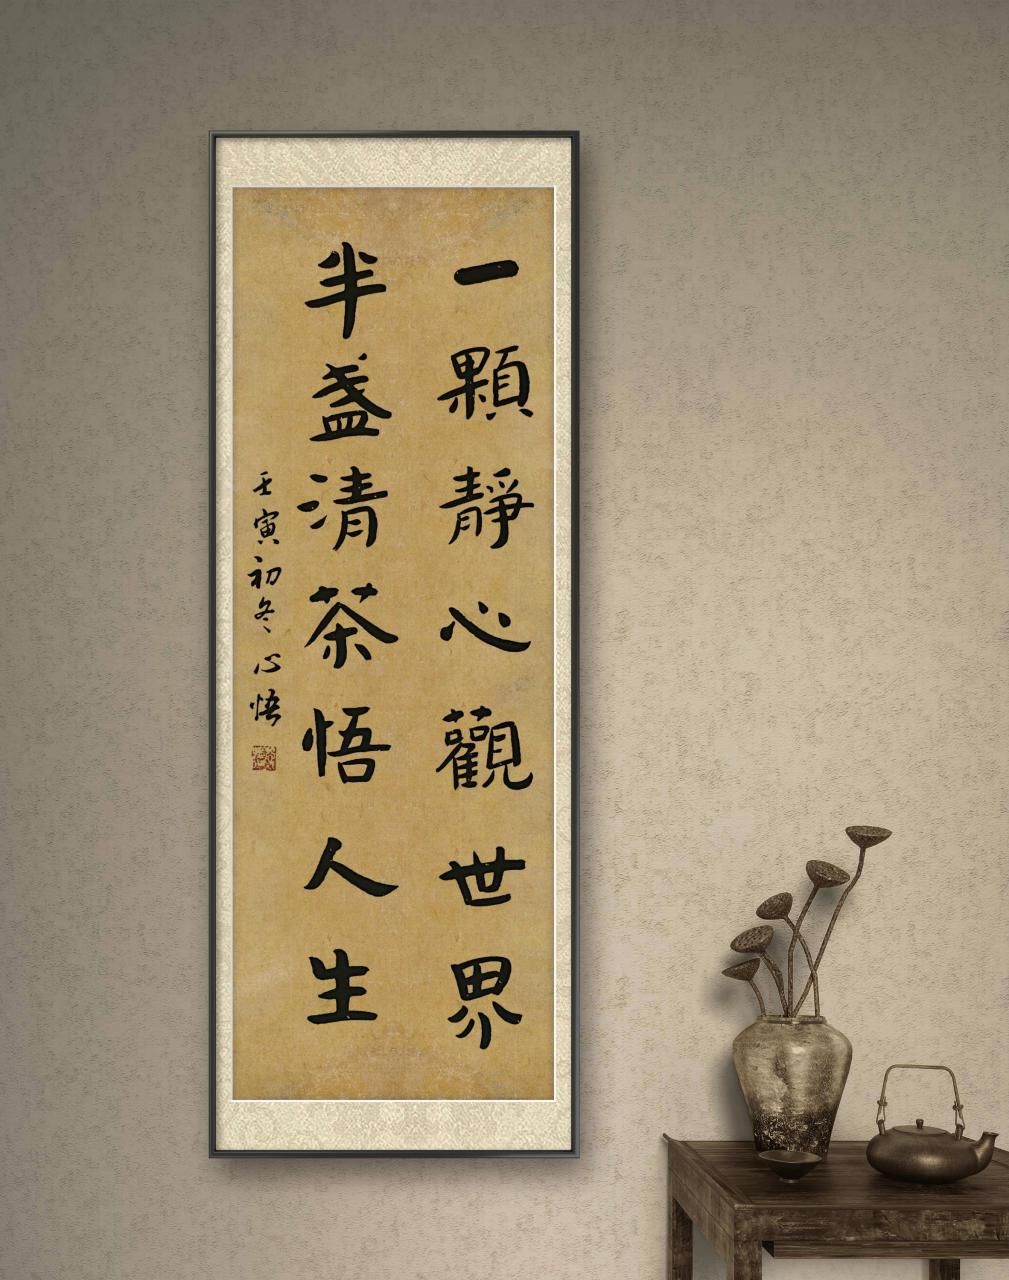 一顆靜心觀世界
半盞清茶悟人生
壬寅初冬心悟